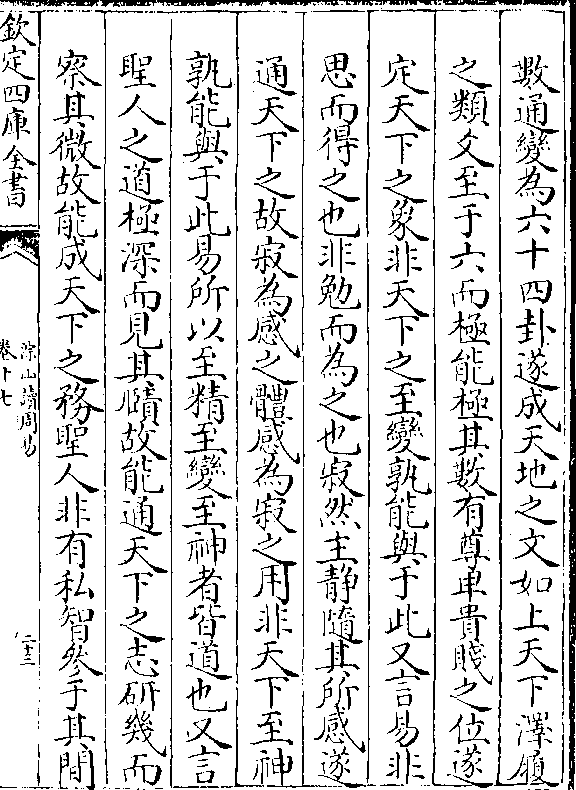 數通變為六十四卦遂成天地之文如上天下澤履
之類爻至于六而極能極其數有尊卑貴賤之位遂
定天下之象非天下之至變孰能與于此又言易非
思而得之也非勉而為之也寂然主静隨其所感遂
通天下之故寂為感之體感為寂之用非天下至神
孰能與于此易所以至精至變至神者皆道也又言
聖人之道極深而見其賾故能通天下之志研幾而
察其微故能成天下之務聖人非有私智參于其間
欽定四庫全書
深山讀周易
卷十七
二十三